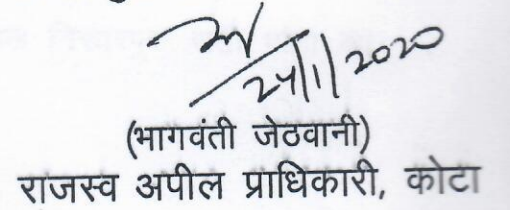 24/1/2020
(भागवंती जेठवानी)
राजस्व अपील प्राधिकारी, कोटा